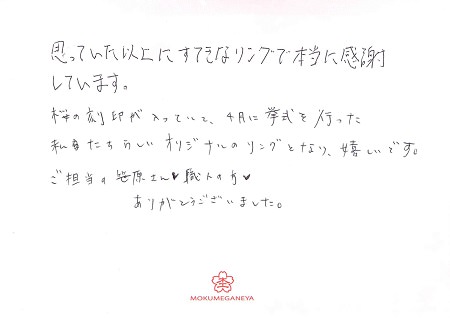 思っていた以上にすてきなリングで本当に感謝
しています。
桜の刻印が入っていて、4月に挙式を行った
私たちらしいオリジナルのリングとなり、嬉しいです。
ご担当の笹原さん♥職人の方♥
ありがとうございました。
MOKUMEGANEYA